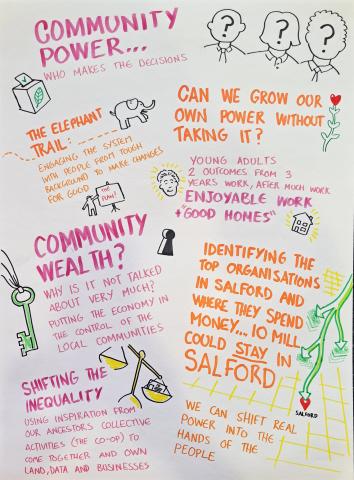 COMMUNITY
POWER...
WHO MAKES THE DECISIONS
?
?
?
THE ELEPHANT
TRAIL:
ENGAGING THE SYSTEM
WITH PEOPLE FROM TOUGH
BACKGROUND TO MAKE CHANGES
FOR GOOD
THE PLAN!
CAN WE GROW OUR
OWN POWER WITHOUT
TAKING IT?
YOUNG ADULTS
2 OUTCOMES FROM 3
YEARS WORK, AFTER MUCH WORK
ENJOYABLE WORK
+ "GOOD HOMES"
COMMUNITY
WEALTH?
WHY IS IT NOT TALKED
ABOUT VERY MUCH?
PUTTING THE ECONOMY IN
THE CONTROL OF THE
LOCAL COMMUNITIES
IDENTIFYING THE
TOP ORGANISATIONS
IN SALFORD AND
WHERE THEY SPEND
MONEY... 10 MILL
COULD STAY IN
SALFORD
SALFORD
SHIFTING THE
INEQUALITY
USING INSPIRATION FROM
OUR ANCESTORS COLLECTIVE
ACTIVITIES (THE CO-OP) TO
COME TOGETHER AND OWN
LAND, DATA AND BUSINESSES
WE CAN SHIFT REAL
POWER INTO THE
HANDS OF THE
PEOPLE